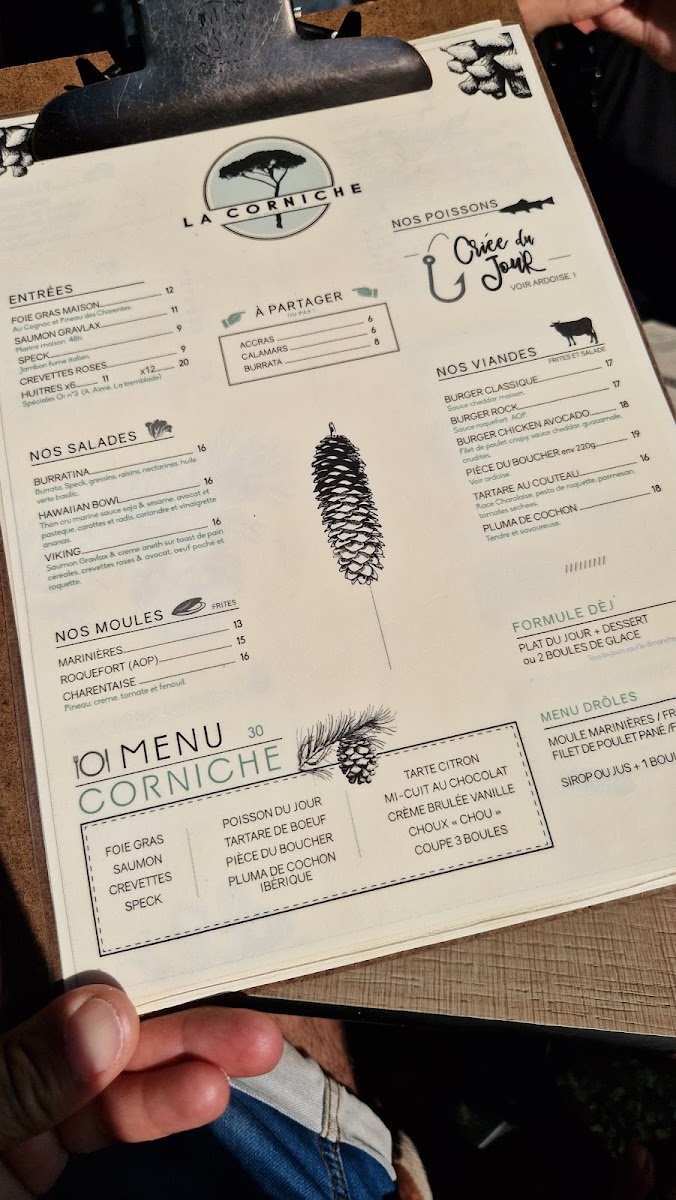 LA CORNICHE
ENTRÉES
FOIE GRAS MAISON 12
Au Cognac et Pineau des Charentes.
SAUMON GRAVLAX 11
Mariné maison 48h.
SPECK 9
Jambon fumé italien.
CREVETTES ROSES 9
HUITRES x6 11 x12 20
Spéciales Or n°3 (A. Aimé. La tremblade)
À PARTAGER
OU PAS !
ACCRAS 6
CALAMARS 6
BURRATA 8
NOS POISSONS
Criée du
Jour
VOIR ARDOISE !
NOS SALADES
BURRATINA 16
Burrata, Speck, gressins, raisins, nectarines, huile
verte basilic.
HAWAIIAN BOWL 16
Thon cru mariné sauce soja & sésame, avocat et
pastèque, carottes et radis, coriandre et vinaigrette
ananas.
VIKING 16
Saumon Gravlax & crème aneth sur toast de pain
céréales, crevettes roses & avocat, oeuf poché et
roquette.
NOS VIANDES
FRITES ET SALADE
BURGER CLASSIQUE 17
Sauce cheddar maison.
BURGER ROCK 17
Sauce roquefort AOP.
BURGER CHICKEN AVOCADO 18
Filet de poulet crispy, sauce cheddar, guacamole,
crudités.
PIÈCE DU BOUCHER env 220g 19
Voir ardoise.
TARTARE AU COUTEAU 16
Race Charolaise, pesto de roquette, parmesan,
tomates séchées.
PLUMA DE COCHON 18
Tendre et savoureuse.
NOS MOULES
FRITES
MARINIÈRES 13
ROQUEFORT (AOP) 15
CHARENTAISE 16
Pineau, creme, tomate et fenouil.
FORMULE DÈJ'
PLAT DU JOUR + DESSERT
ou 2 BOULES DE GLACE
Tous les jours sauf le dimanche
MENU DRÔLES
MOULE MARINIÈRES / FR
FILET DE POULET PANÉ /F
SIROP OU JUS + 1 BOUL
MENU 30
CORNICHE
FOIE GRAS
SAUMON
CREVETTES
SPECK
POISSON DU JOUR
TARTARE DE BOEUF
PIÈCE DU BOUCHER
PLUMA DE COCHON
IBÉRIQUE
TARTE CITRON
MI-CUIT AU CHOCOLAT
CRÈME BRULÉE VANILLE
CHOUX « CHOU »
COUPE 3 BOULES